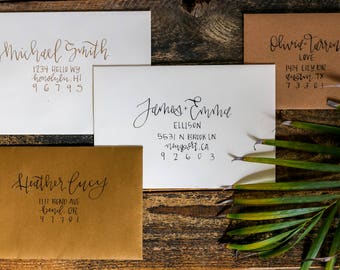 Michael Smith
1234 HELLO WY
honolulu, HI
96795
Olivia
LOVE
1424 LILY DR
austin, TX
73301
James + Emma
ELLISON
5631 N BROOK LN
newport, CA
92603
Heather Lucy
1117 BEND AVE
bend, OR
97701